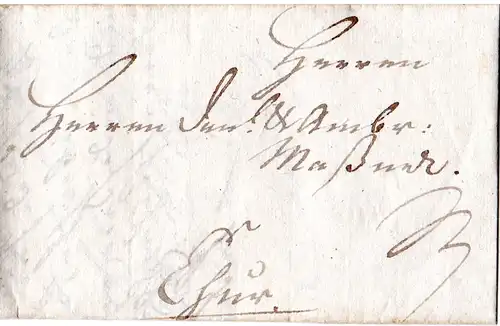 Herren
Herren Dan. & Ambr:
Maßner.
Chur.